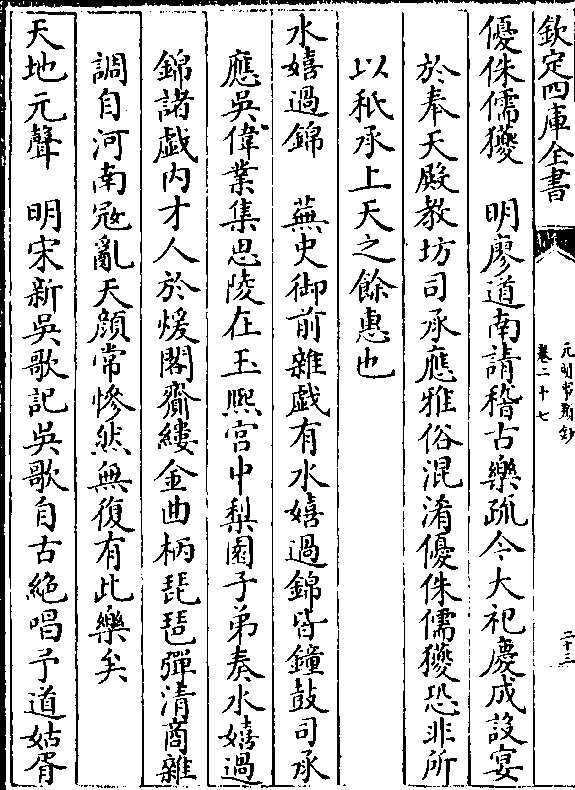 欽定四庫全書
元明事類鈔
卷二十七
二十三
優侏儒獶　明廖道南請稽古樂疏今大祀慶成設宴
於奉天殿教坊司承應雅俗混淆優侏儒獶恐非所
以秖承上天之餘惠也
水嬉過錦　蕪史御前雜戯有水嬉過錦皆鐘鼓司承
應吳偉業集思陵在玉熙宫中梨園子弟奏水嬉過
錦諸戯内才人於煖閣齎縷金曲柄琵琶彈清商雜
調自河南冦亂天顔常慘然無復有此樂矣
天地元聲　明宋新吳歌記吳歌自古絶唱予道姑胥